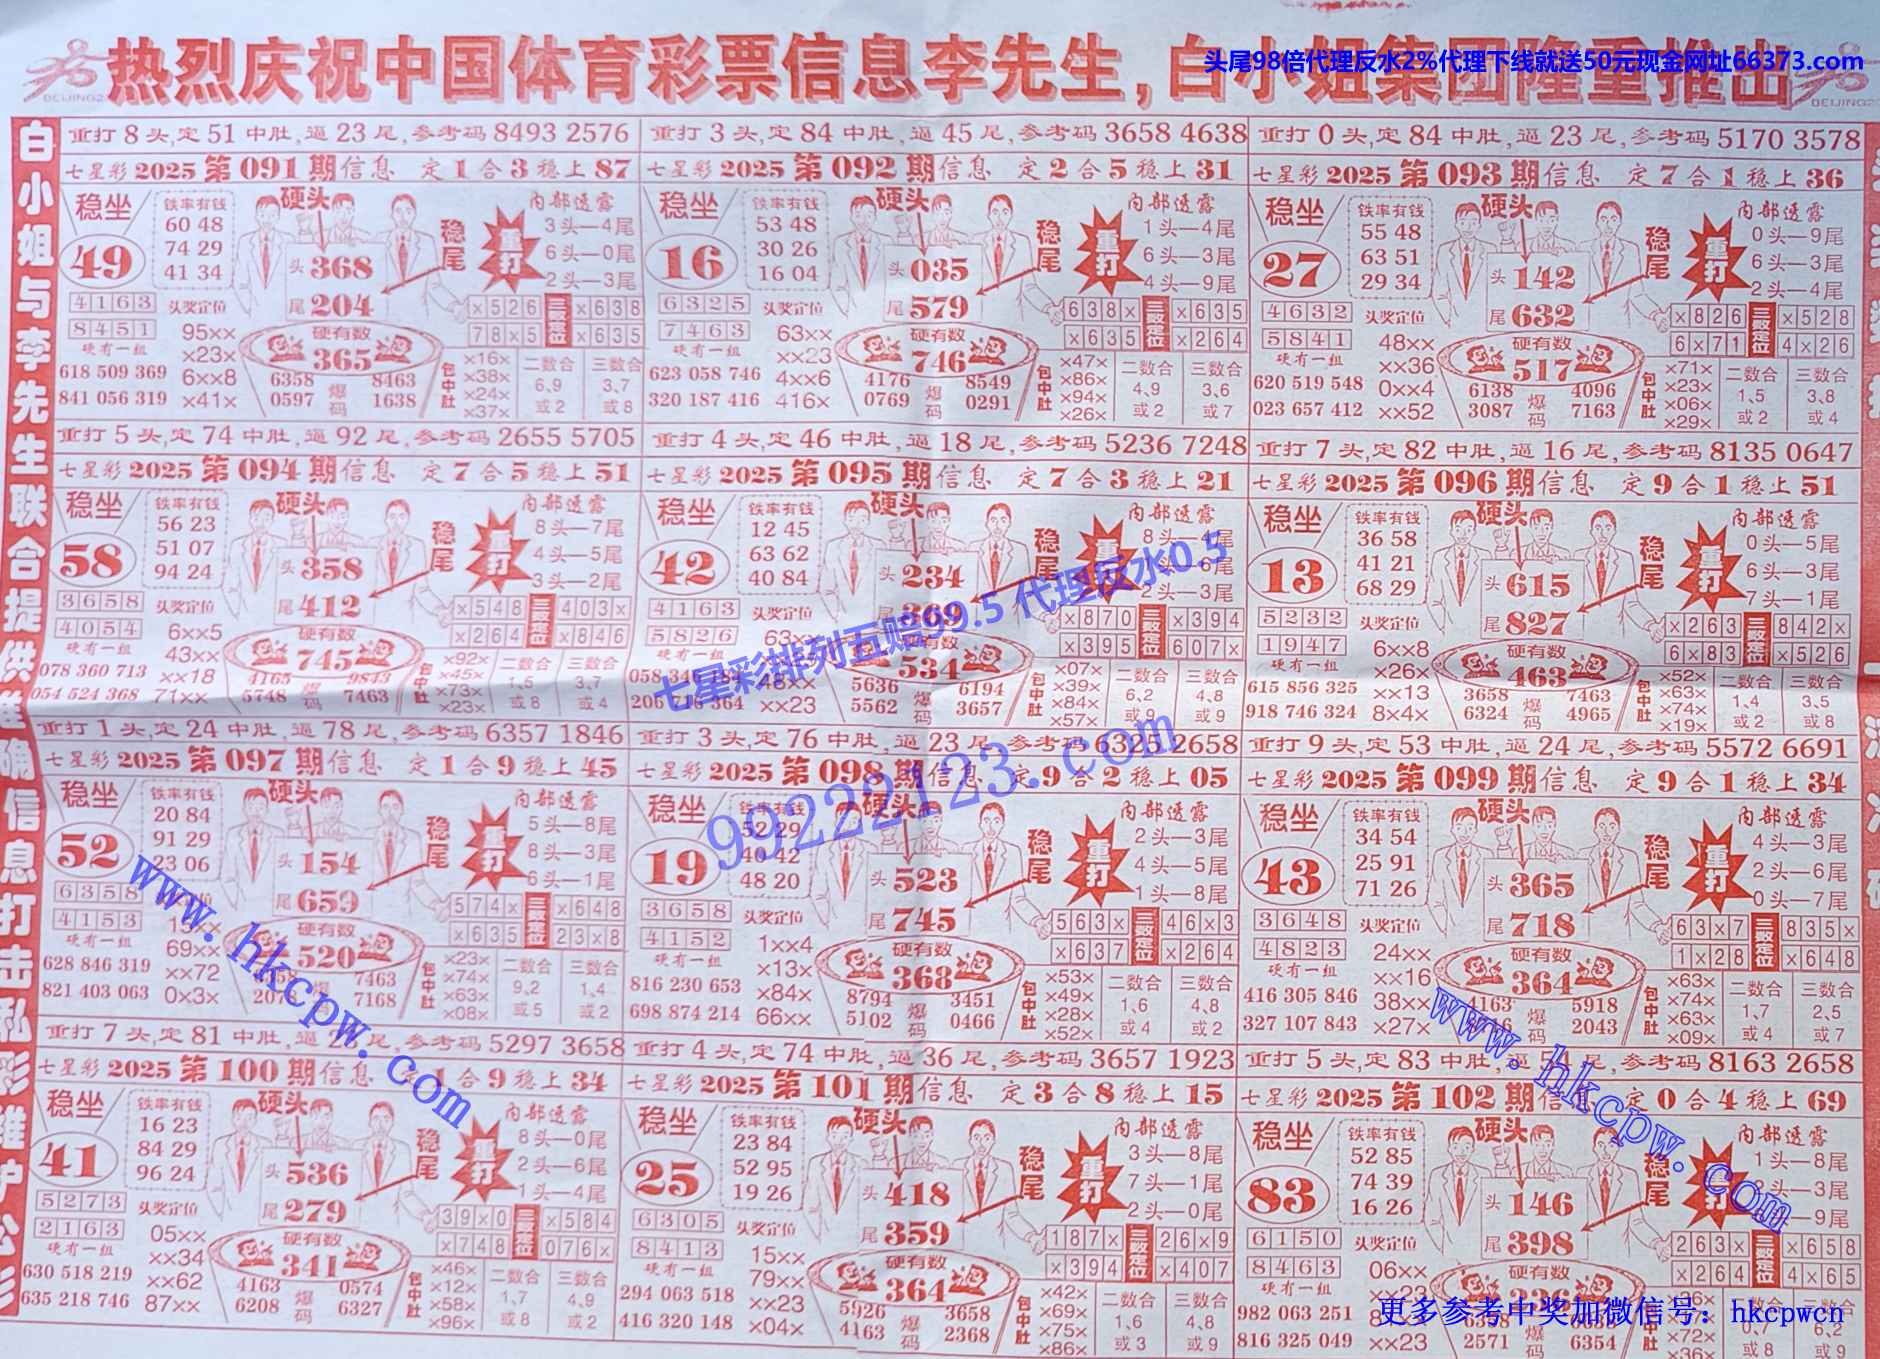 热烈庆祝中国体育彩票信息李先生,白小姐集团隆重推出
头尾98倍代理反水2%代理下线就送50元现金网址66373.com
白小姐与李先生联合提供准确信息打击私彩维护公彩
重打8头,定51中肚,逼23尾,参考码8493 2576
七星彩2025第091期信息 定1合3稳上87
稳坐 49
铁率有钱
60 48
74 29
41 34
硬头
头368
尾204
稳尾
重打
内部透露
3头—4尾
6头—0尾
2头—3尾
4163
8451
硬有一组
618 509 369
841 056 319
头奖定位
95××
×23×
6××8
×41×
硬有数
365
6358 8463
0597 爆码 1638
×526 三数定位 ×638
78×5 ×635
包中肚
×16×
×38×
×24×
×37×
二数合
6、9
或2
三数合
3、7
或8
重打3头,定84中肚,逼45尾,参考码3658 4638
七星彩2025第092期信息 定2合5稳上31
稳坐 16
铁率有钱
53 48
30 26
16 04
硬头
头035
尾579
稳尾
重打
内部透露
1头—4尾
6头—3尾
4头—9尾
6325
7463
硬有一组
623 058 746
320 187 416
头奖定位
63××
××23
4××6
416×
硬有数
746
4176 8549
0769 爆码 0291
638× 三数定位 ×635
×635 ×264
包中肚
×47×
×86×
×94×
×26×
二数合
4、9
或2
三数合
3、6
或7
重打0头,定84中肚,逼23尾,参考码5170 3578
七星彩2025第093期信息 定7合1稳上36
稳坐 27
铁率有钱
55 48
63 51
29 34
硬头
头142
尾632
稳尾
重打
内部透露
0头—9尾
6头—3尾
2头—4尾
4632
5841
硬有一组
620 519 548
023 657 412
头奖定位
48××
××36
0××4
××52
硬有数
517
6138 4096
3087 爆码 7163
×826 三数定位 ×528
6×71 4×26
包中肚
×71×
×23×
×06×
×29×
二数合
1、5
或2
三数合
3、8
或4
重打5头,定74中肚,逼92尾,参考码2655 5705
七星彩2025第094期信息 定7合5稳上51
稳坐 58
铁率有钱
56 23
51 07
94 24
硬头
头358
尾412
稳尾
重打
内部透露
8头—7尾
4头—5尾
3头—2尾
3658
4054
硬有一组
078 360 713
054 524 368
头奖定位
6××5
43××
××18
71××
硬有数
745
4165 9843
5748 7463
×548 三数定位 403×
×264 ×846
包中肚
×92×
×45×
×73×
×23×
二数合
1、5
或8
三数合
3、7
或4
重打4头,定46中肚,逼18尾,参考码5236 7248
七星彩2025第095期信息 定7合3稳上21
稳坐 42
铁率有钱
12 45
63 62
40 84
硬头
头234
尾369
稳尾
内部透露
2头—3尾
4163
5826
硬有一组
××23
534
5636 6194
5562 爆码 3657
×870 三数定位 ×394
×395 607×
包中肚
×07×
×39×
×84×
×57×
二数合
6、2
或9
三数合
4、8
或9
重打7头,定82中肚,逼16尾,参考码8135 0647
七星彩2025第096期信息 定9合1稳上51
稳坐 13
铁率有钱
36 58
41 21
68 29
硬头
头615
尾827
稳尾
重打
内部透露
0头—5尾
6头—3尾
7头—1尾
5232
1947
硬有一组
615 856 325
918 746 324
头奖定位
6××8
×26×
××13
8×4×
硬有数
463
3658 7463
6324 爆码 4965
×263 三数定位 842×
6×83 ×526
包中肚
×52×
×63×
×74×
×19×
二数合
1、4
或2
三数合
3、5
或8
重打1头,定24中肚,逼78尾,参考码6357 1846
七星彩2025第097期信息 定1合9稳上45
稳坐 52
铁率有钱
20 84
91 29
23 06
硬头
头154
尾659
稳尾
重打
内部透露
5头—8尾
8头—3尾
6头—1尾
6358
4153
硬有一组
628 846 319
821 403 063
69××
××72
0×3×
硬有数
520
7463
7168
574× 三数定位 ×648
×635 23×8
包中肚
×23×
×74×
×63×
×08×
二数合
9、2
或5
三数合
1、4
或2
重打3头,定76中肚,逼23尾,参考码6325 2658
七星彩2025第098期信息 定9合2稳上05
稳坐 19
铁率有钱
52 29
40 42
48 20
硬头
头523
尾745
稳尾
重打
内部透露
2头—3尾
4头—5尾
1头—8尾
3658
4152
硬有一组
816 230 653
698 874 214
头奖定位
1××4
×13×
×84×
66××
硬有数
368
8794 3451
5102 爆码 0466
563× 三数定位 46×3
×637 ×264
包中肚
×53×
×49×
×28×
×52×
二数合
1、6
或4
三数合
4、8
或2
重打9头,定53中肚,逼24尾,参考码5572 6691
七星彩2025第099期信息 定9合1稳上34
稳坐 43
铁率有钱
34 54
25 91
71 26
硬头
头365
尾718
稳尾
重打
内部透露
4头—3尾
2头—6尾
0头—7尾
3648
4823
硬有一组
416 305 846
327 107 843
头奖定位
24××
××16
38××
×27×
硬有数
364
4163 5918
爆码 2043
63×7 三数定位 835×
1×28 ×648
包中肚
×63×
×74×
×63×
×09×
二数合
1、7
或4
三数合
2、5
或7
重打7头,定81中肚,逼2 尾,参考码5297 3658
七星彩2025第100期信息 定1合9稳上34
稳坐 41
铁率有钱
16 23
84 29
96 24
硬头
头536
尾279
稳尾
重打
内部透露
8头—0尾
2头—6尾
1头—4尾
5273
2163
硬有一组
630 518 219
635 218 746
头奖定位
05××
××34
××62
87××
硬有数
341
4163 0574
6208 爆码 6327
39×0 三数定位 ×584
×748 076×
包中肚
×46×
×12×
×58×
×96×
二数合
1、7
或8
三数合
4、9
或2
重打4头,定74中肚,逼36尾,参考码3657 1923
七星彩2025第101期信息 定3合8稳上15
稳坐 25
铁率有钱
23 84
52 95
19 26
硬头
头418
尾359
稳尾
重打
内部透露
3头—8尾
7头—1尾
2头—0尾
6305
8413
硬有一组
294 063 518
416 320 148
头奖定位
15××
79××
××23
×04×
硬有数
364
5926 3658
4163 爆码 2368
187× 三数定位 26×9
×394 ×407
包中肚
×42×
×69×
×75×
×86×
二数合
1、6
或3
三数合
4、8
或9
重打5头,定83中肚,逼54尾,参考码8163 2658
七星彩2025第102期信息 定0合4稳上69
稳坐 83
铁率有钱
52 85
74 39
16 26
硬头
头146
尾398
稳尾
内部透露
1头—8尾
头—3尾
—9尾
6150
8463
硬有一组
982 063 251
816 325 049
头奖定位
06××
××23
××23
硬有数
2571 爆码 6354
263× 三数定位 ×658
×264 4×65
×72×
×36×
二数合
0、7
或8
三数合
6、2
或9
七星彩排列五赔99.5 代理反水0.5
99222123.com
www.hkcpw.com
www.hkcpw.com
更多参考中奖加微信号: hkcpwcn